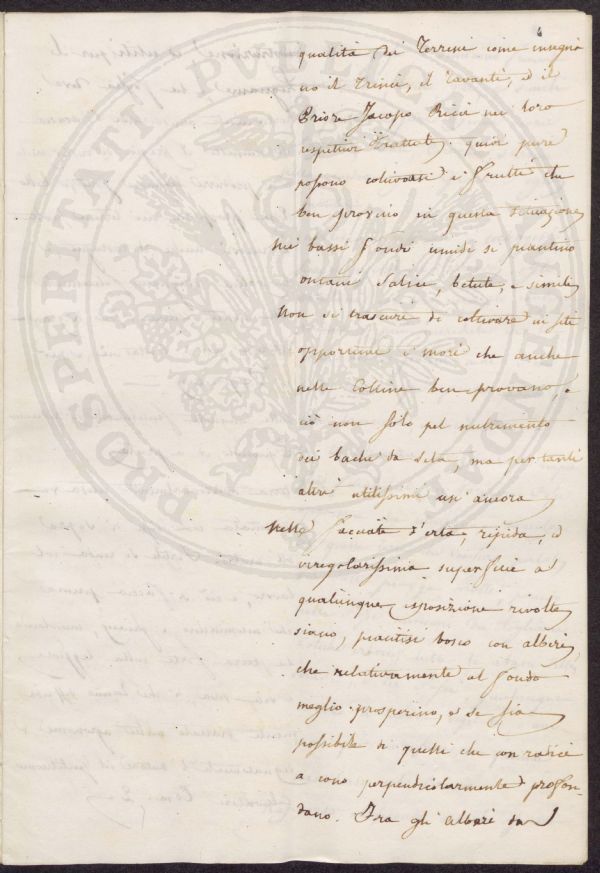 6
qualità dei Terreni come insegna
no il Trinci, il Tavanti, ed il
Priore Jacopo Ricci nei loro
respettivi Trattati. quivi pure
possono coltivarsi i Frutti che
ben provino in questa situazione
Nei bassi Fondi umidi si piantino
ontani Salici, betule, e simili
Non si trascuri di coltivare in siti
opportuni i mori che anche
nelle Colline ben provano, e
ciò non solo pel nutrimento
dei bachi da seta, ma per tanti
altri utilissimi usi ancora
Nelle facciate d'erta, ripida, ed
irregolarissima superficie a
qualunque esposizione rivolte
siano, piantisi bosco con alberi,
che relativamente al fondo
meglio prosperino, e se sia
possibile di quelli che con radici
a cono perpendicolarmente profon-
dano. Fra gli alberi da
PROSPERITATI PUBLICAE AUGENDAE